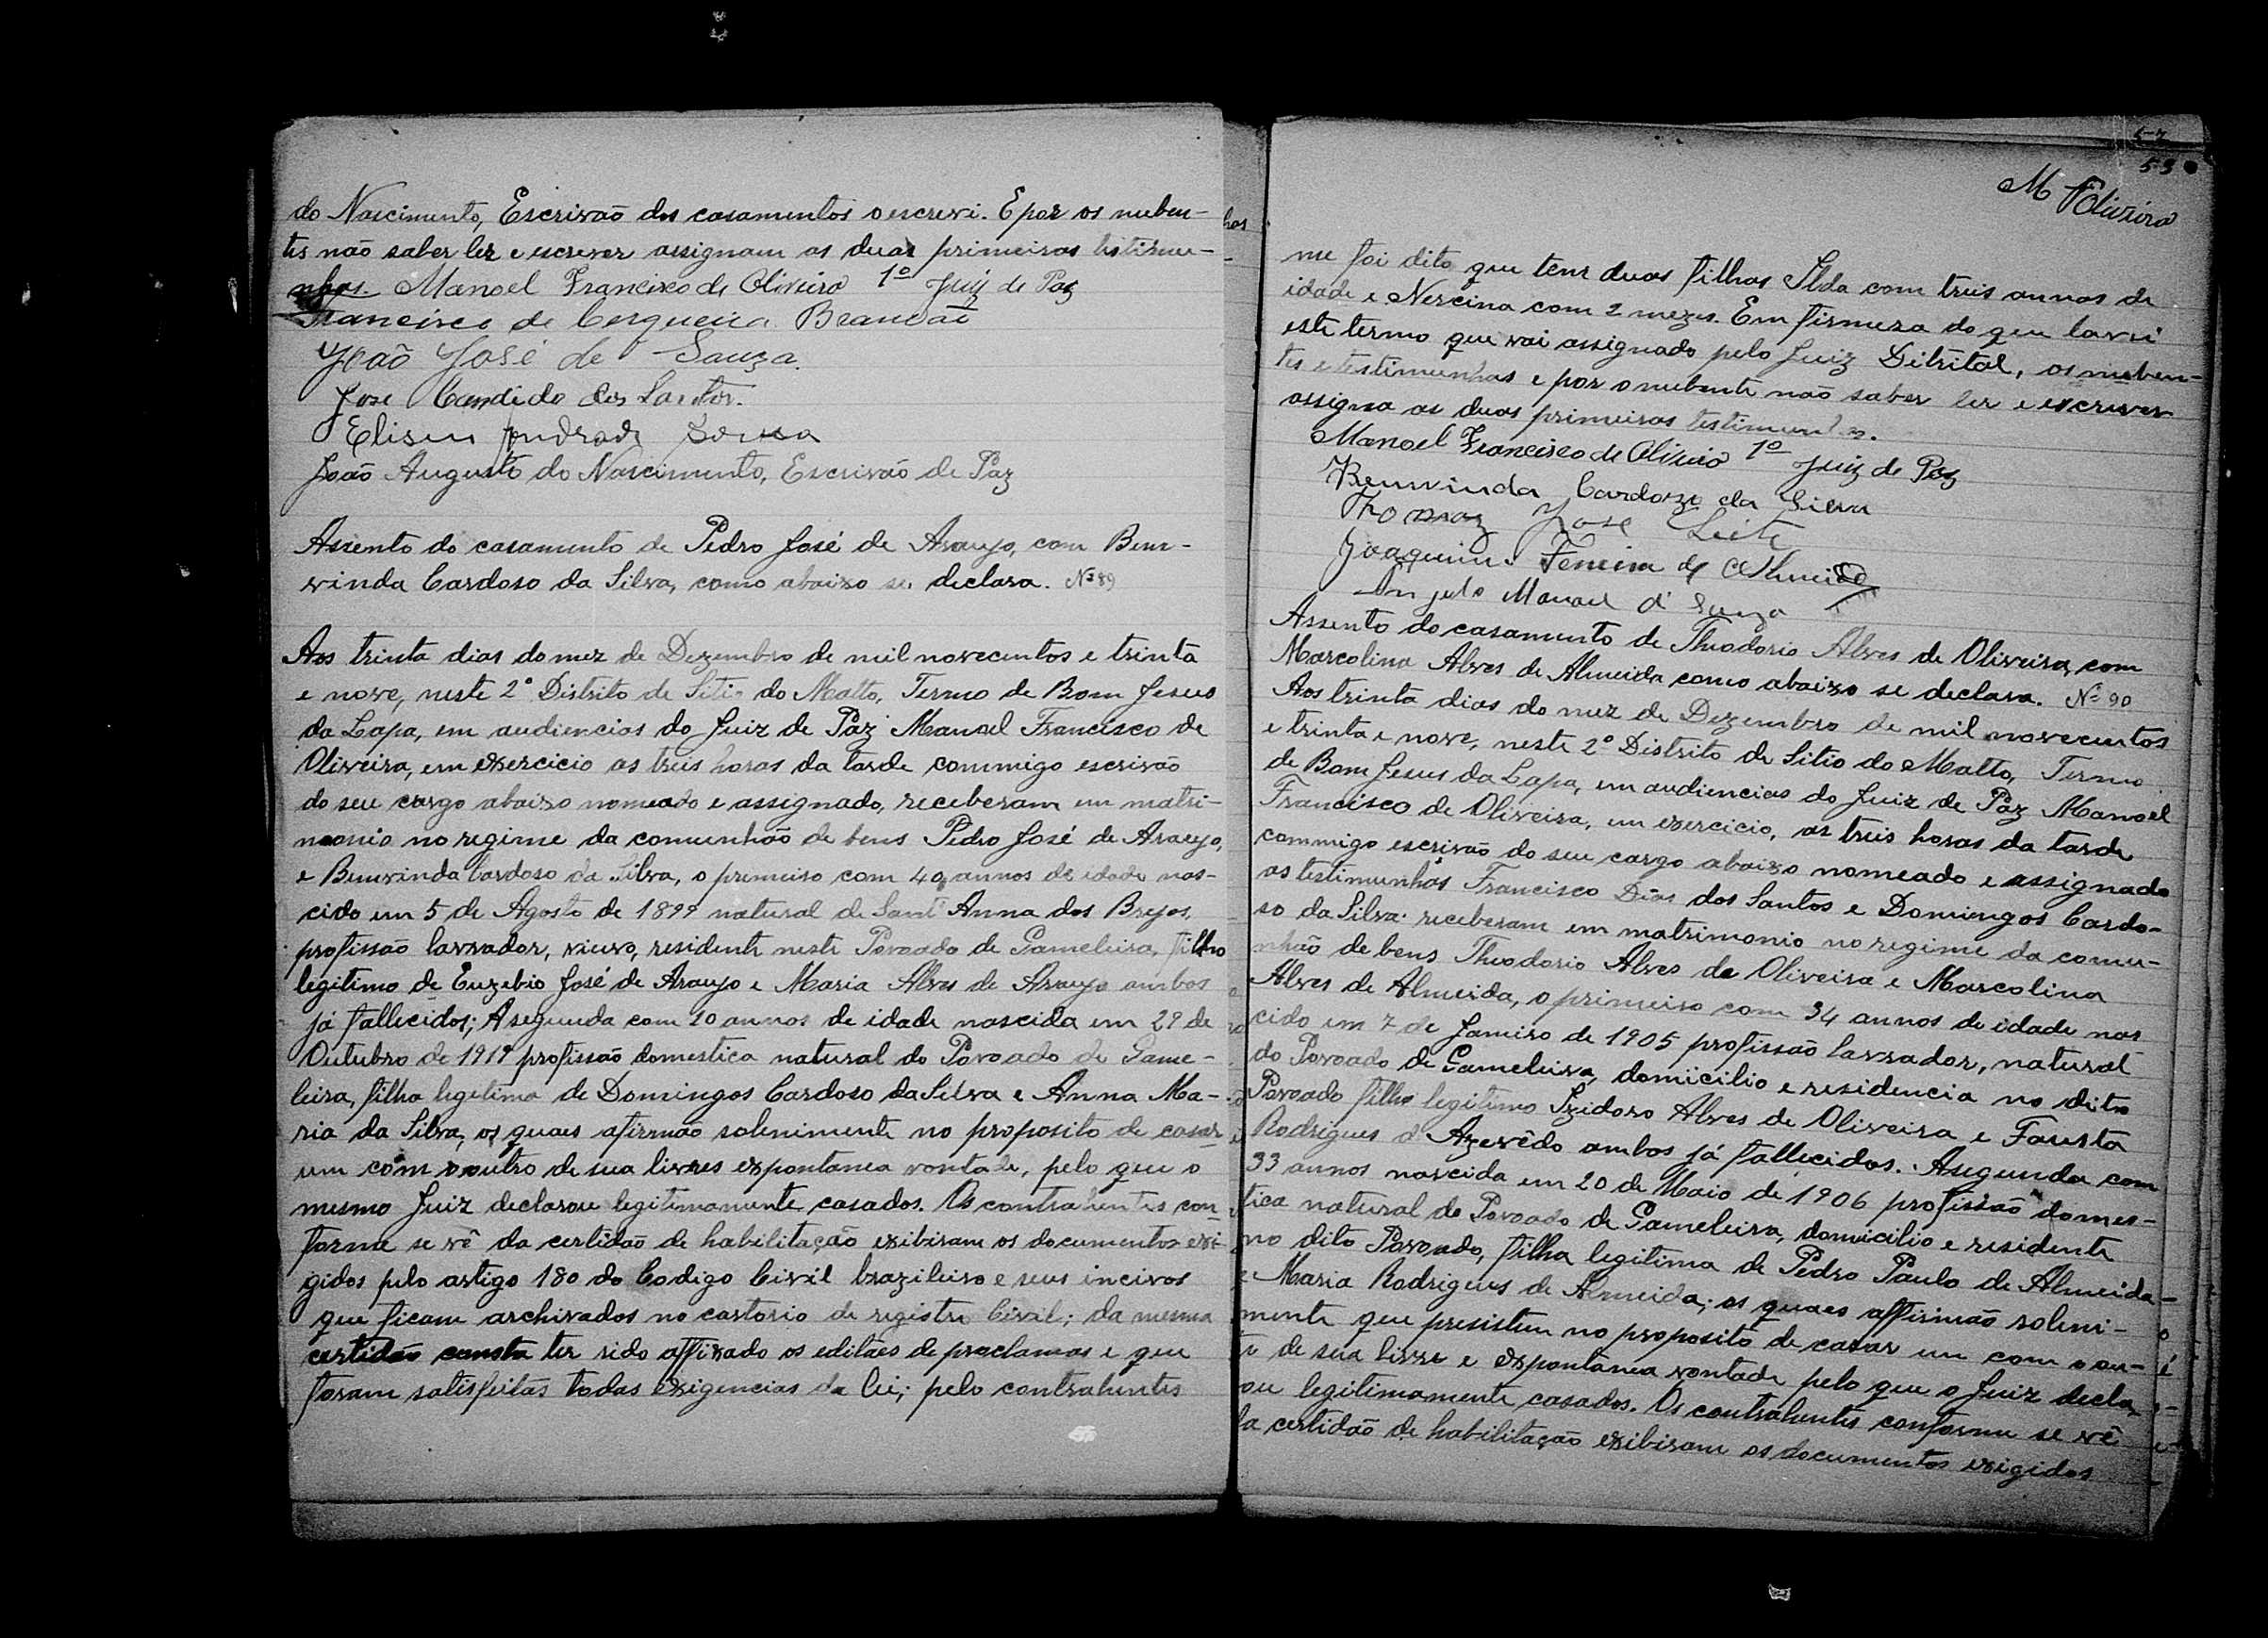 do Nascimento, Escrivão dos casamentos o escrevi. E por os nuben-
tes não saber ler e escrever assignam as duas primeiras testimu-
nhas. Manoel Francisco de Oliveira 1º Juiz de Paz
Francisco de Cerqueira Brandão
João José de Souza.
Jose Candido dos Santos.
Eliseu Andrade Sousa
João Augusto do Nascimento, Escrivão de Paz
Assento do casamento de Pedro José de Araujo, com Bem-
vinda Cardoso da Silva, como abaixo se declara. Nº 89
Aos trinta dias do mez de Dezembro de mil novecentos e trinta
e nove, neste 2º Distrito de Sitio do Matto, Termo de Bom Jesus
da Lapa, em audiencias do Juiz de Paz Manoel Francisco de
Oliveira, em exercicio as treis horas da tarde commigo escrivão
do seu cargo abaixo nomeado e assignado, receberam em matri-
monio no regime da comunhão de bens Pedro José de Araujo,
e Bemvinda Cardoso da Silva, o premeiro com 40 annos de idade nas-
cido em 5 de Agosto de 1899 natural de Sant'Anna dos Brejos,
profissão lavrador, viuvo, residente neste Povoado de Gameleira, filho
legitimo de Euzebio José de Araujo e Maria Alves de Araujo ambos
já fallecidos; A segunda com 20 annos de idade nascida em 29 de
Outubro de 1919 profissão domestica natural do Povoado de Game-
leira, filha legitima de Domingos Cardoso da Silva e Anna Ma-
ria da Silva, os quaes afirmão solenimente no proposito de casar
um com o outro de sua livres expontanea vontade, pelo que o
mesmo Juiz declarou legitimamente casados. Os contrahentes con-
forme se vê da certidão de habilitação exibiram os documentos exi-
gidos pelo artigo 180 do Codigo Civil brazileiro e seus incivos
que ficam archivados no cartorio de registro Civil; da mesma
certidão consta ter sido affixado os editaes de proclamas e que
foram satisfeitas todas exigencias da lei; pelo contrahentes
53
M F Oliveira
me foi dito que tem duas filhas Ilda com treis annos de
idade e Nercina com 2 mezes. Em firmeza do que lavrei
este termo que vai assignado pelo Juiz Ditrital, os nuben-
tes e testimunhas e por o nubente não saber ler e escrever
assigna as duas primeiras testimunhas.
Manoel Francisco de Oliveira 1º Juiz de Paz
Bemvinda Cardozo da Silva
Thomaz Jose Leite
Joaquim Ferreira de Almeida
Angelo Manoel d' Souza
Assento do casamento de Theodorio Alves de Oliveira, com
Marcolina Alves de Almeida como abaixo se declara. Nº 90
Aos trinta dias do mez de Dezembro de mil novecentos
e trinta e nove, neste 2º Distrito de Sitio do Matto, Termo
de Bom Jesus da Lapa, em audiencias do Juiz de Paz Manoel
Francisco de Oliveira, em exercicio, as treis horas da tarde
commigo escrivão do seu cargo abaixo nomeado e assignado
as testimunhas Francisco Dias dos Santos e Domingos Cardo-
so da Silva: receberam em matrimonio no regime da comu-
nhão de bens Theodorio Alves de Oliveira e Marcolina
Alves de Almeida, o primeiro com 34 annos de idade nas
cido em 7 de Janeiro de 1905 profissão lavrador, natural
do Povoado de Gameleira, domicilio e residencia no dito
Povoado filho legitimo Izidoro Alves de Oliveira e Fausta
Rodrigues d'Azevêdo ambos já fallecidos. A segunda com
33 annos nascida em 20 de Maio de 1906 profissão domes-
tica natural do Povoado de Gameleira, domicilio e residente
no dito Povoado, filha legitima de Pedro Paulo de Almeida
e Maria Rodrigues de Almeida; os quaes affirmão soleni-
mente que presistem no proposito de casar um com o ou-
de sua livre e expontanea vontade pelo que o Juiz decla
ou legitimamente casados. Os contrahentes conforme se vê
da certidão de habilitação exibiram os documentos exigidos